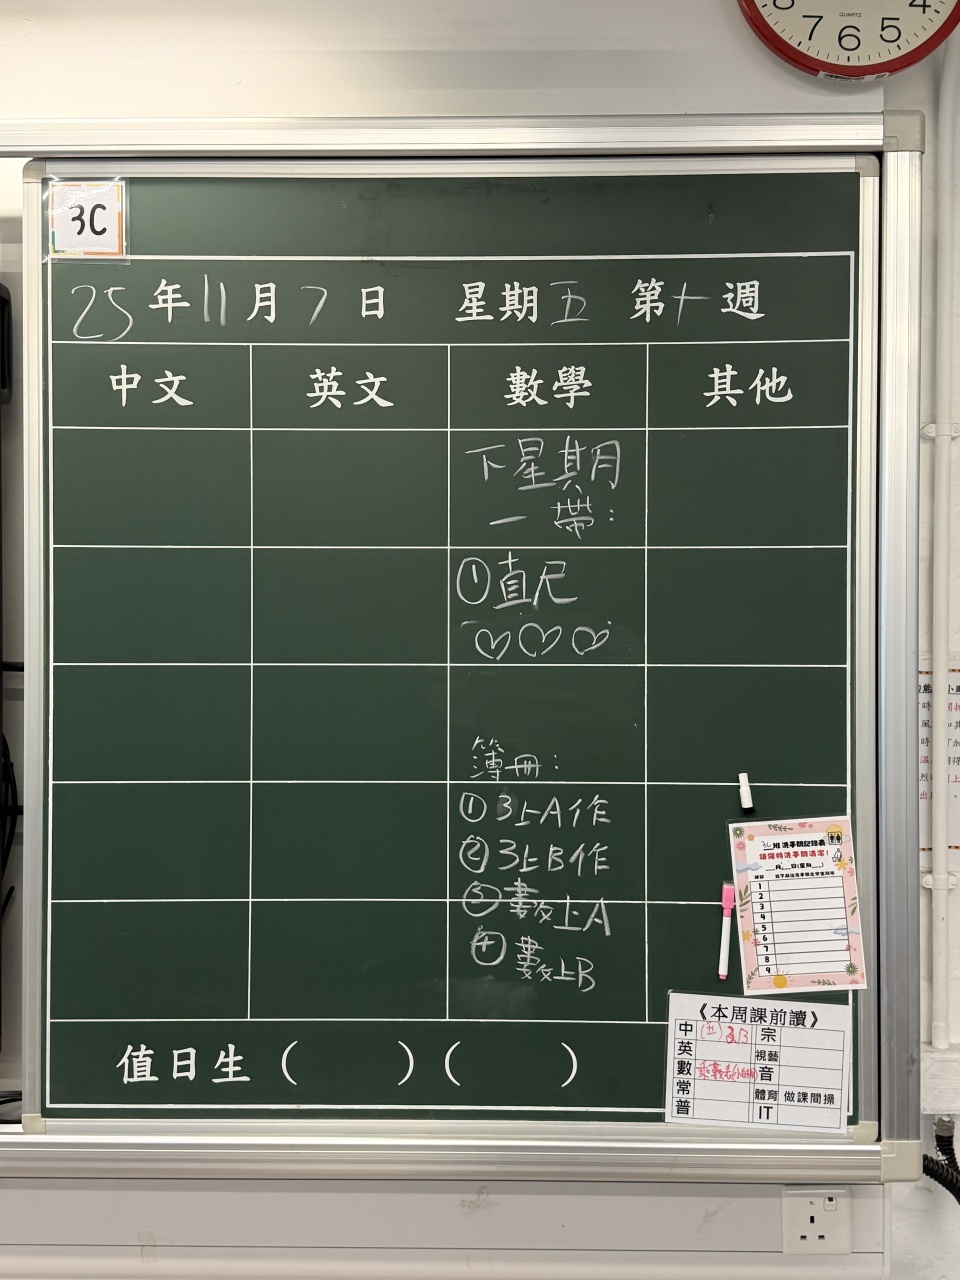 QUARTZ
7 6 5 4
3C
25年11月7日 星期五 第十週
中文 英文 數學 其他
下星期
一帶：
①直尺
♡♡♡
簿冊：
①3上A作
②3上B作
③數上A
④數上B
3C班洗手間記錄表
請保持洗手間清潔！
__月__日(星期__)
1
2
3
4
5
6
7
8
9
《本周課前讀》
中 宗
英 視藝
數 乘數表 音
常 體育 做課間操
普 IT
值日生（ ）（ ）